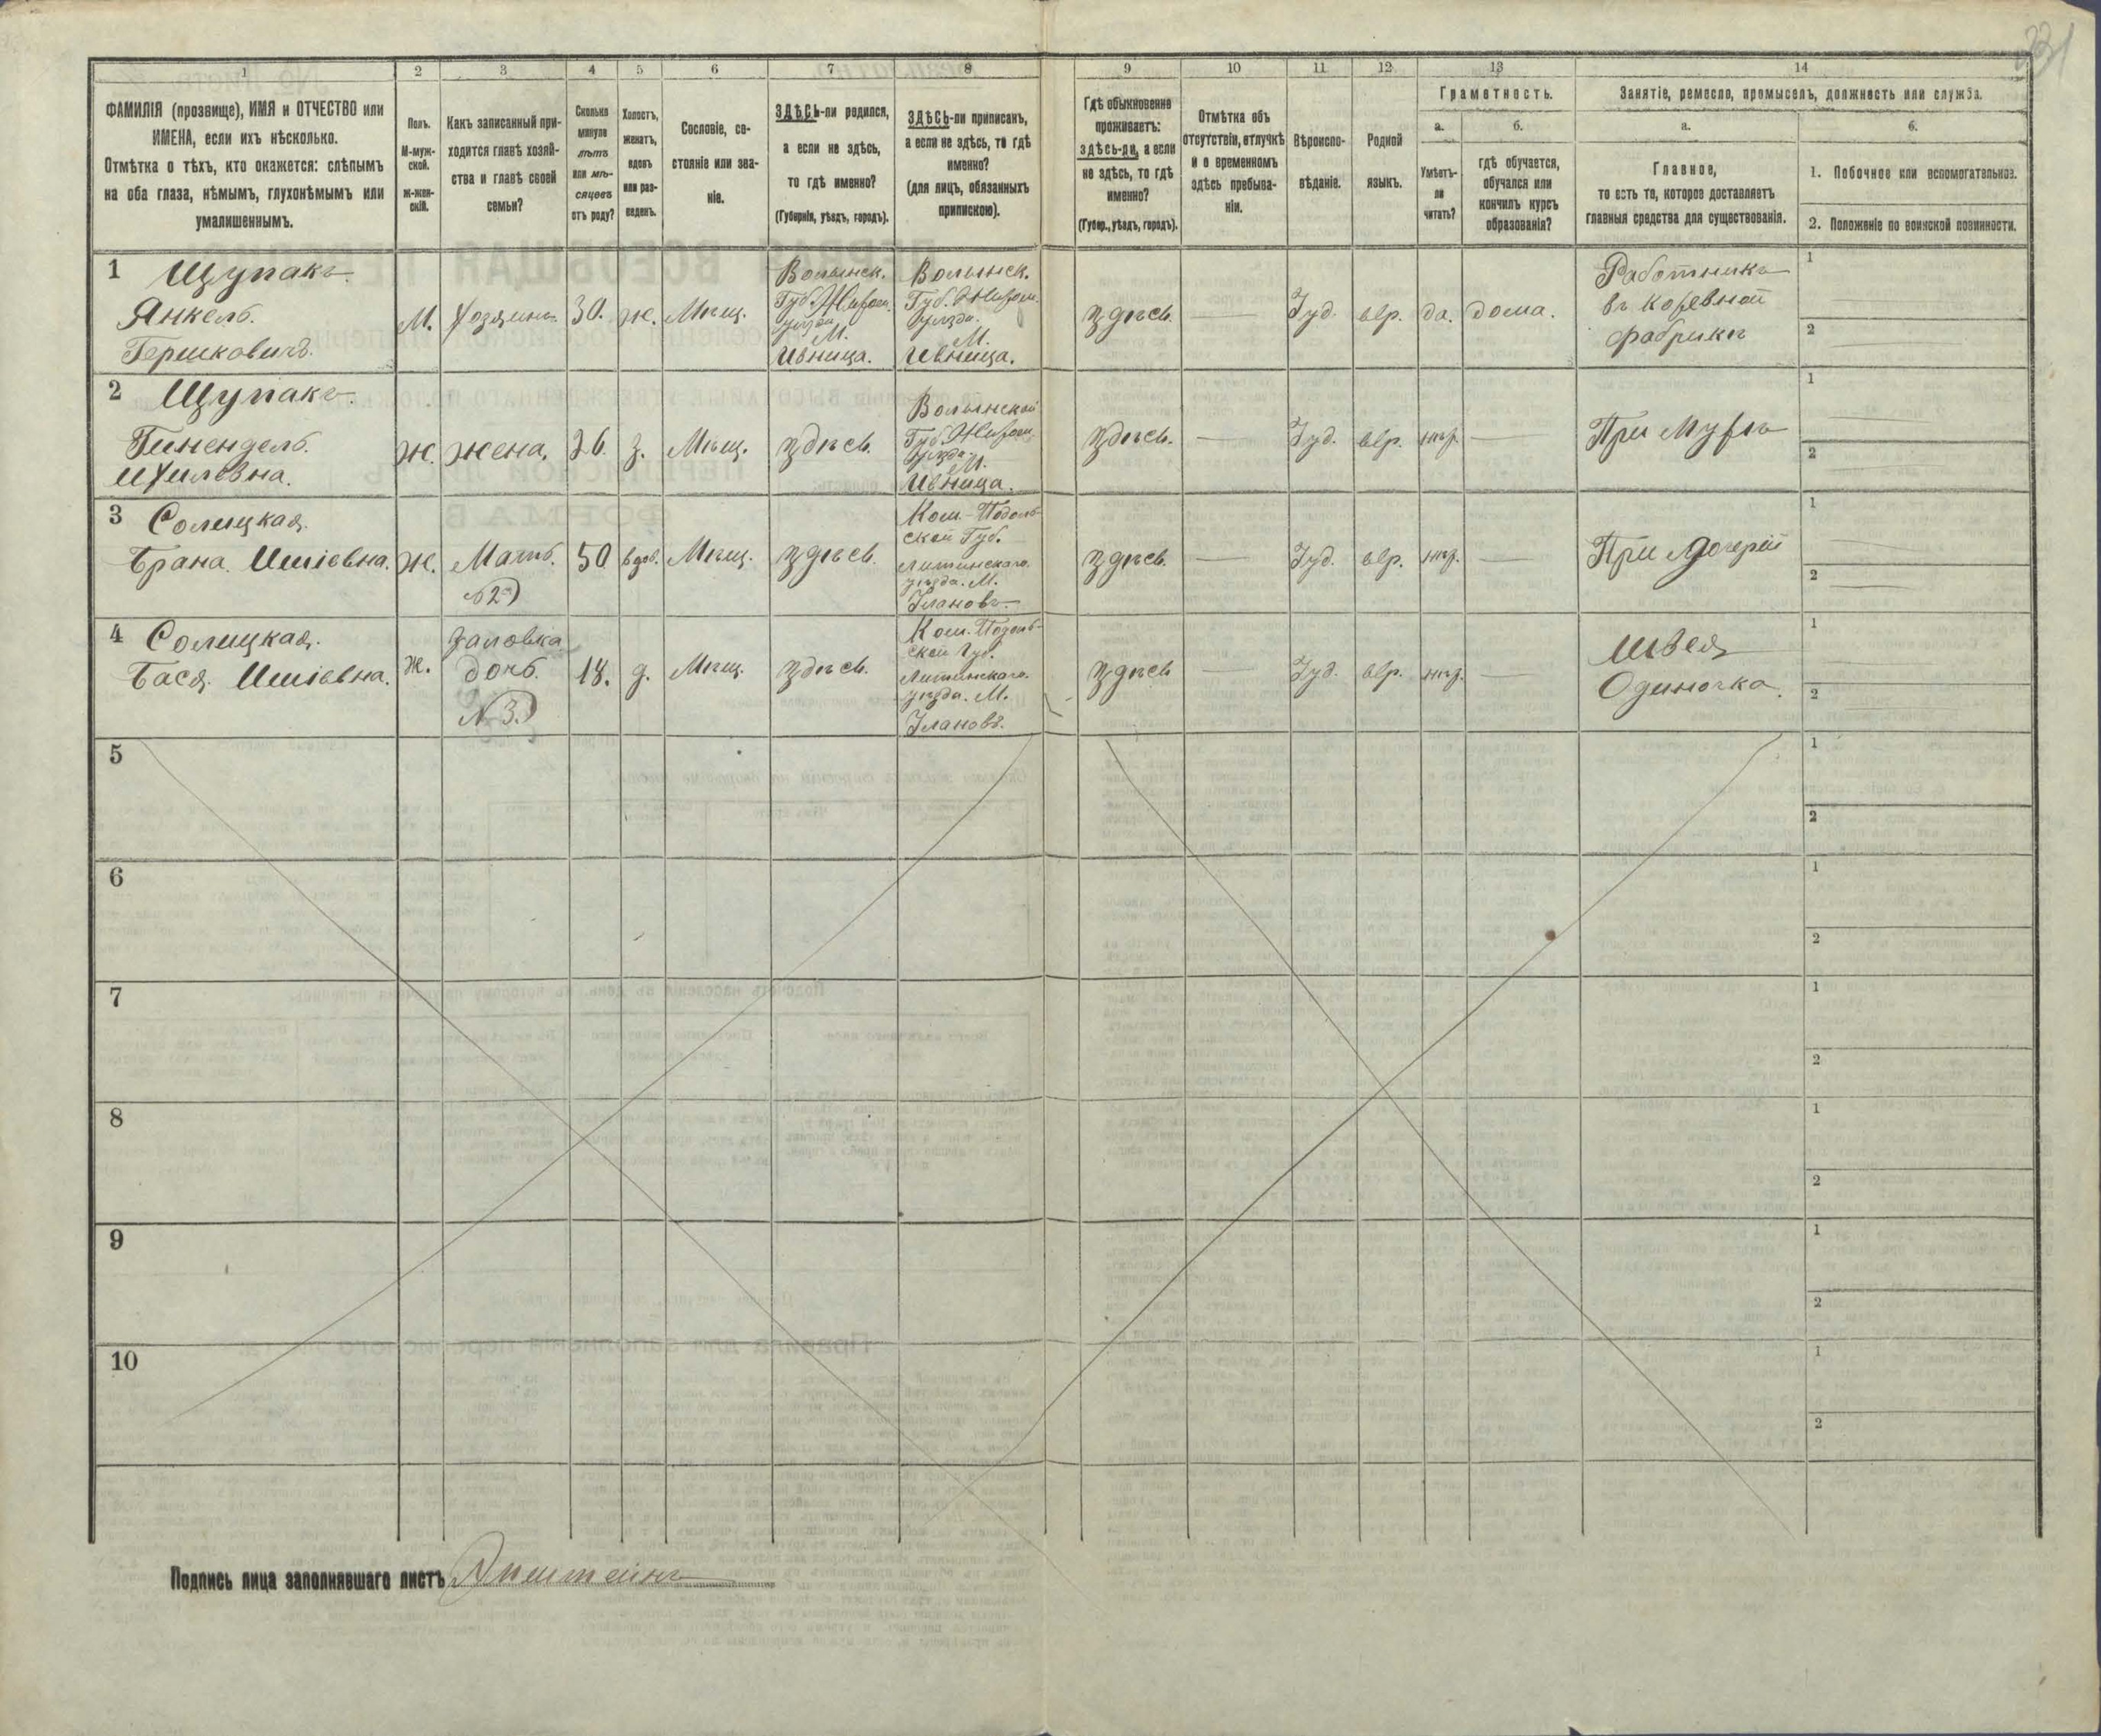 231
1
2
3
4
5
6
7
8
9
10
11
12
13
14
ФАМИЛІЯ (прозвище), ИМЯ и ОТЧЕСТВО или
ИМЕНА, если ихъ нѣсколько.
Отмѣтка о тѣхъ, кто окажется: слѣпымъ
на оба глаза, нѣмымъ, глухонѣмымъ или
умалишеннымъ.
Полъ.
М-муж-
ской.
ж-жен-
скій.
Какъ записанный при-
ходится главѣ хозяй-
ства и главѣ своей
семьи?
Сколько
минуло
лѣтъ
или мѣ-
сяцевъ
отъ роду?
Холостъ,
женатъ,
вдовъ
или раз-
веденъ.
Сословіе, со-
стояніе или зва-
ніе.
ЗДѢСЬ-ли родился,
а если не здѣсь,
то гдѣ именно?
(Губернія, уѣздъ, городъ).
ЗДѢСЬ-ли приписанъ,
а если не здѣсь, то гдѣ
именно?
(для лицъ, обязанныхъ
припискою).
Гдѣ обыкновенно
проживаетъ:
здѣсь-ли, а если
не здѣсь, то гдѣ
именно?
(Губер., уѣздъ, городъ).
Отмѣтка объ
отсутствіи, отлучкѣ
и о временномъ
здѣсь пребыва-
ніи.
Вѣроиспо-
вѣданіе.
Родной
языкъ.
Грамотность.
а.
Умѣетъ-
ли
читать?
б.
гдѣ обучается,
обучался или
кончилъ курсъ
образованія?
Занятіе, ремесло, промыселъ, должность или служба.
а.
Главное,
то есть то, которое доставляетъ
главныя средства для существованія.
б.
1. Побочное или вспомогательное.
2. Положеніе по воинской повинности.
1 Щупакъ
Янкель.
Гершковичъ.
М.
Хозяинъ.
30.
ж.
Мѣщ.
Волынск.
Губ. Житом.
уѣзда
М.
Ивница.
Волынск.
Губ. Житом.
уѣзда.
М.
Ивница.
здѣсь.
Іуд.
евр.
да.
дома.
Работникъ
въ
фабрикѣ
1
2
2 Щупакъ.
Гинендель.
Ихиловна.
Ж.
жена,
26.
з.
Мѣщ.
здѣсь.
Волынской
Губ. Житом.
уѣзда
М.
Ивница.
здѣсь.
Іуд.
евр.
нѣт.
При Мужѣ
1
2
3 Солицкая.
Брана. Ишіевна.
Ж.
Мать.
№ 2)
50
вдов.
Мѣщ.
здѣсь.
Кам.-Подоль-
ской Губ.
Литинскаго.
уѣзда. М.
Улановъ
здѣсь.
Іуд.
евр.
нѣт.
При Дочерѣй
1
2
4 Солицкая.
Бася. Ишіевна.
Ж.
золовка
дочь.
№ 3.)
18.
д.
Мѣщ.
здѣсь.
Кам. Подоль-
ской Губ.
Литинскаго.
уѣзда. М.
Улановъ.
здѣсь
Іуд.
евр.
нѣт.
Швея
Одиночка.
1
2
5
1
2
6
1
2
7
1
2
8
1
2
9
1
2
10
1
2
Подпись лица заполнявшаго листъ